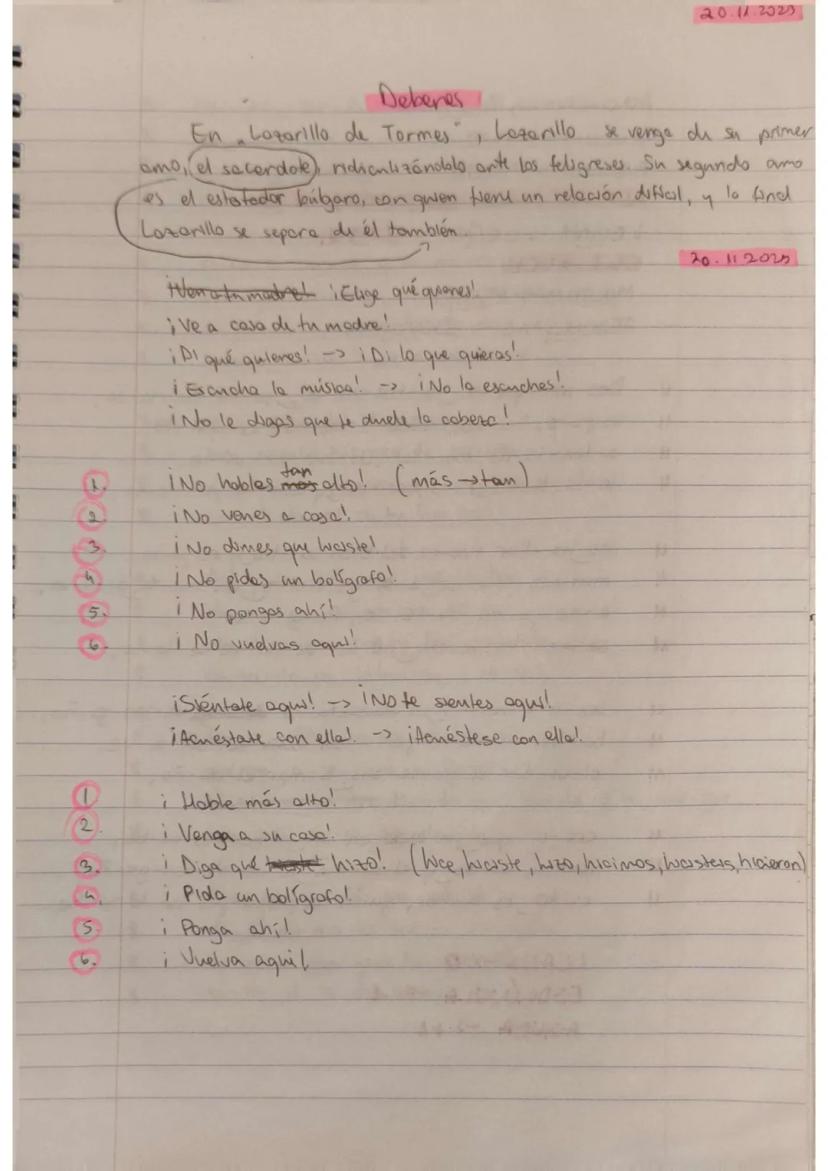 20.11.2025
Deberes
En „Lazarillo de Tormes", Lazarillo se venga de su primer
amo, el sacerdote, ridiculizándolo ante los feligreses. Su segundo amo
es el estafador búlgaro, con quien tiene un relación difícil, y la final
Lazarillo se separa de él también.
20.11.2025
¡Elige qué quieres!
¡Ve a casa de tu madre!
¡Di qué quieres! -> ¡Di lo que quieras!
¡Escucha la música! -> ¡No la escuches!
¡No le digas que te duele la cabeza!
1. ¡No hables tan más alto! (más → tan)
2 ¡No venes a casa!
3. ¡No dimes que hiciste!
4 ¡No pidas un bolígrafo!
5. ¡No pongas ahí!
6. ¡No vuelvas aquí!
¡Siéntate aquí! -> ¡No te sientes aquí!
¡Acuéstate con ella! -> ¡Acuéstese con ella!
1 ¡Hable más alto!
2. ¡Venga a su casa!
3. ¡Diga qué hizo! (hice, hiciste, hizo, hicimos, hicisteis, hicieron)
4. ¡Pida un bolígrafo!
5 ¡Ponga ahí!
6. ¡Vuelva aquí!